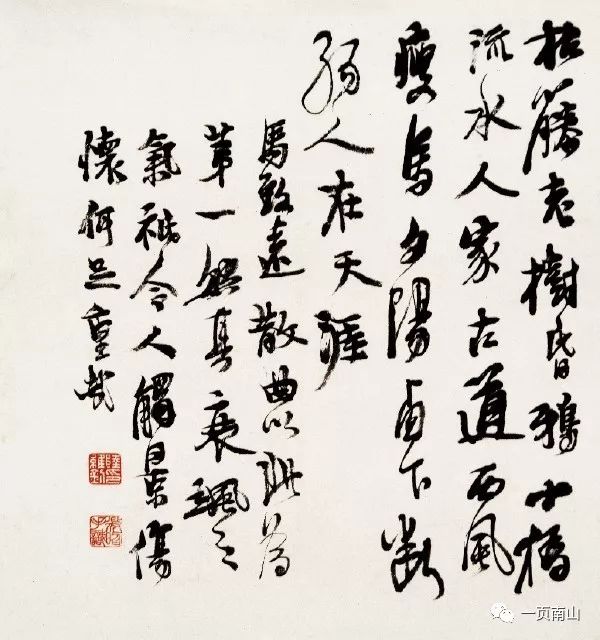 枯藤老樹昏鴉小橋
流水人家古道西風
瘦馬夕陽西下斷
腸人在天涯
馬致遠散曲以此為
第一然真衰颯之
氣祗令人觸景傷
懷何足重哉
一页南山